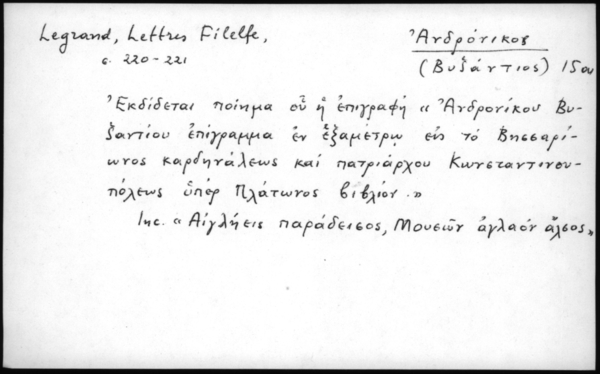 Legrand, Lettres Filelfe,
σ. 220-221
Ἀνδρόνικος
(Βυζάντιος) 15ου
Ἐκδίδεται ποίημα οὗ ἡ ἐπιγραφή «Ἀνδρονίκου Βυ-
ζαντίου ἐπίγραμμα ἐν ἑξαμέτρῳ εἰς τὸ Βησσαρί-
ωνος καρδηνάλεως καί πατριάρχου Κωνσταντινου-
πόλεως ὑπέρ Πλάτωνος βιβλίον.»
Inc. «Αἰγλήεις παράδεισος, Μουσῶν ἀγλαόν ἄλσος»